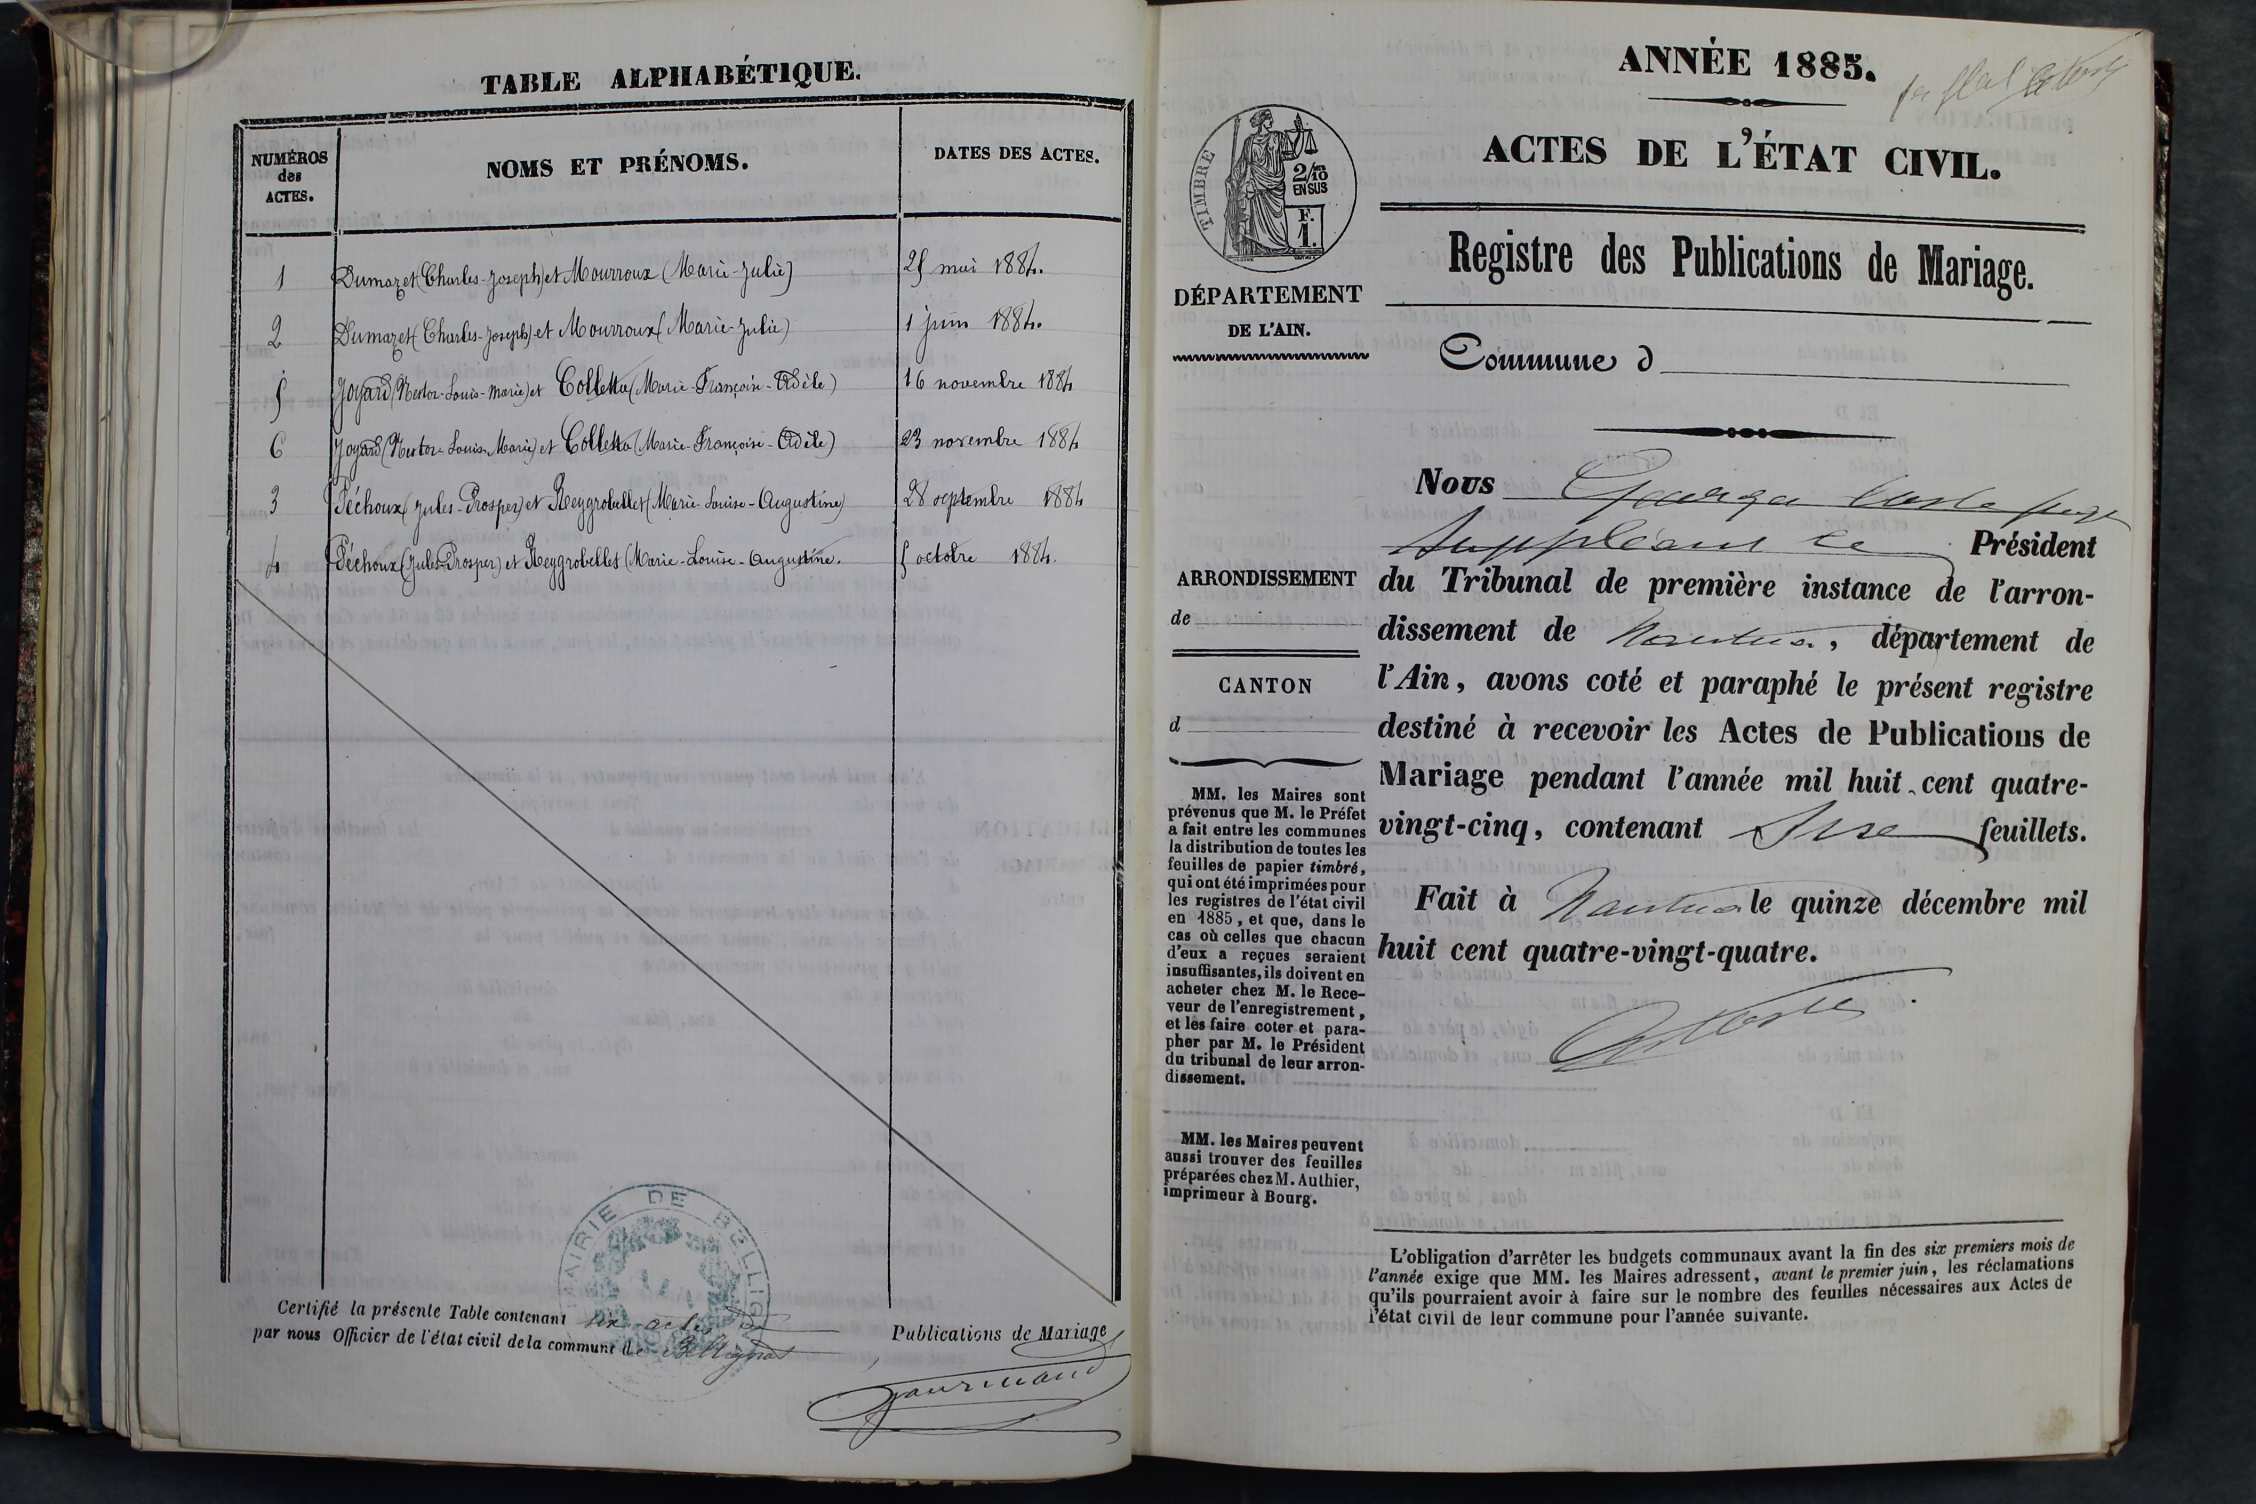 TABLE ALPHABÉTIQUE.
NUMÉROS des ACTES.
NOMS ET PRÉNOMS.
DATES DES ACTES.
1 Dumazet (Charles-Joseph) et Mourroux (Marie-Julie) 25 mai 1884.
2 Dumazet (Charles-Joseph) et Mourroux (Marie-Julie) 1 juin 1884.
5 Joyard (Nestor-Louis-Marie) et Colletta (Marie-Françoise-Adèle) 16 novembre 1884
6 Joyard (Nestor-Louis-Marie) et Colletta (Marie-Françoise-Adèle) 23 novembre 1884
3 Péchoux (Jules-Prosper) et Reygrobellet (Marie-Louise-Augustine) 28 septembre 1884
4 Péchoux (Jules-Prosper) et Reygrobellet (Marie-Louise-Augustine. 5 octobre 1884.
MAIRIE DE BELLIGNAT
Certifié la présente Table contenant six actes Publications de Mariage
par nous Officier de l'état civil de la commune de Bellignat,
Gourmand
ANNÉE 1885.
ACTES DE L'ÉTAT CIVIL.
TIMBRE
2/10 EN SUS
F. 1.
DÉPARTEMENT
DE L'AIN.
Registre des Publications de Mariage.
Commune d
Nous Georges Coste juge
suppléant le Président
du Tribunal de première instance de l'arron-
dissement de Nantua, département de
l'Ain, avons coté et paraphé le présent registre
destiné à recevoir les Actes de Publications de
Mariage pendant l'année mil huit cent quatre-
vingt-cinq, contenant feuillets.
Fait à Nantua le quinze décembre mil
huit cent quatre-vingt-quatre.
ARRONDISSEMENT
de
CANTON
d
MM. les Maires sont
prévenus que M. le Préfet
a fait entre les communes
la distribution de toutes les
feuilles de papier timbré,
qui ont été imprimées pour
les registres de l'état civil
en 1885, et que, dans le
cas où celles que chacun
d'eux a reçues seraient
insuffisantes, ils doivent en
acheter chez M. le Rece-
veur de l'enregistrement,
et les faire coter et para-
pher par M. le Président
du tribunal de leur arron-
dissement.
MM. les Maires peuvent
aussi trouver des feuilles
préparées chez M. Authier,
imprimeur à Bourg.
L'obligation d'arrêter les budgets communaux avant la fin des six premiers mois de
l'année exige que MM. les Maires adressent, avant le premier juin, les réclamations
qu'ils pourraient avoir à faire sur le nombre des feuilles nécessaires aux Actes de
l'état civil de leur commune pour l'année suivante.